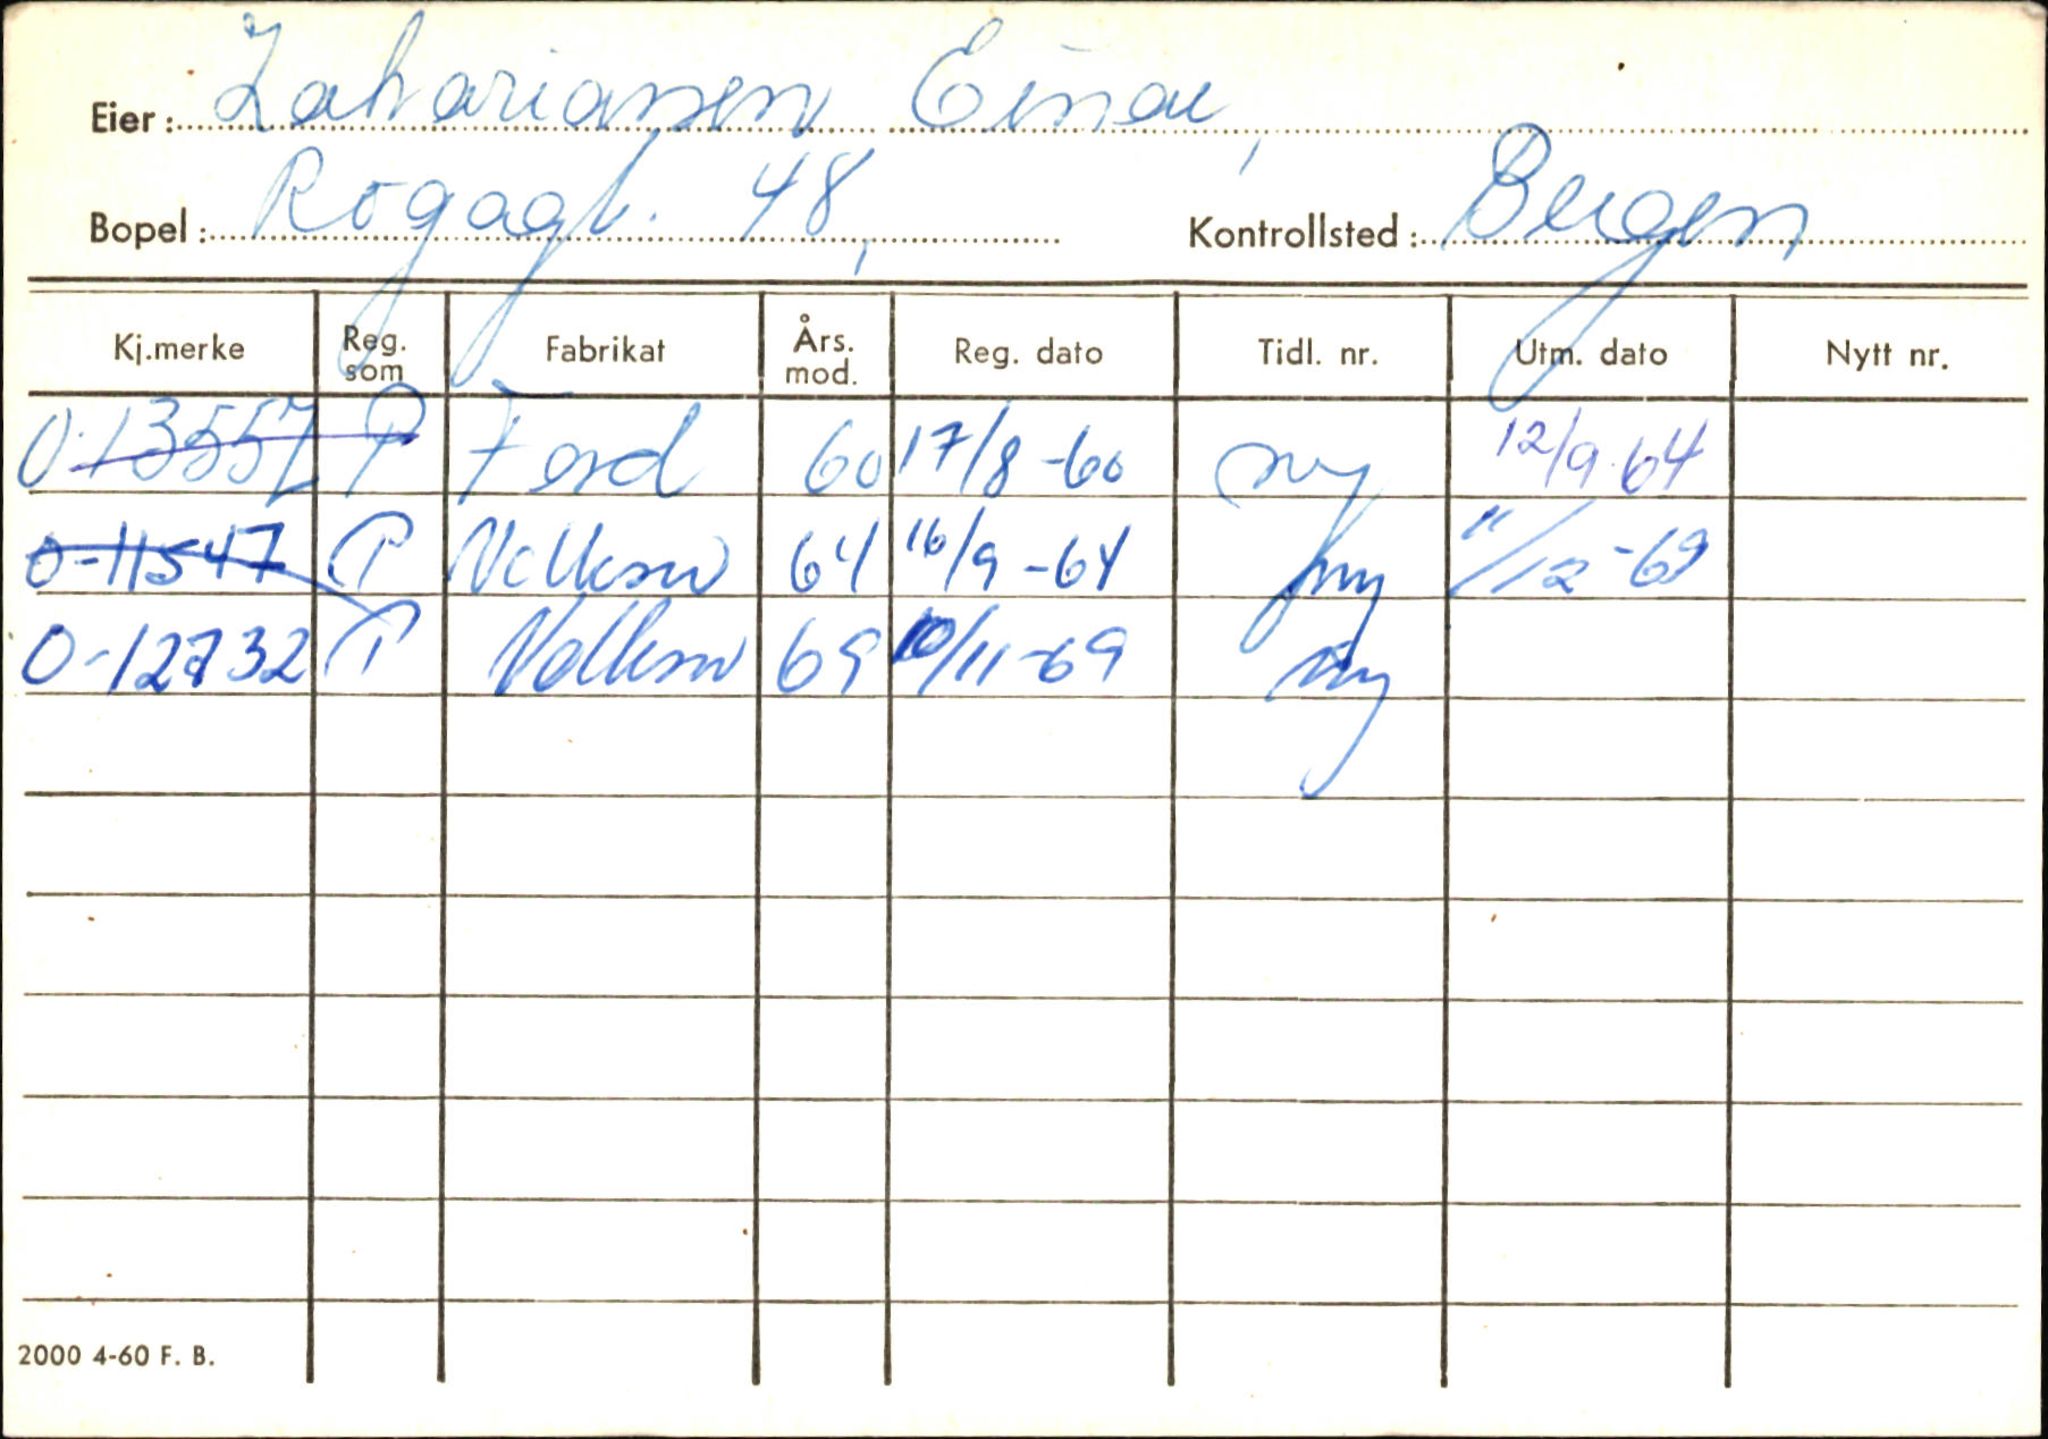 Eier: Zahariassen Einar,
Bopel: Rogagt. 48, Kontrollsted: Bergen
Kj.merke Reg. som Fabrikat Års. mod. Reg. dato Tidl. nr. Utm. dato Nytt nr.
O-13557 P Ford 60 17/8-60 ny 12/9-64
O-11547 P Volksw 64 16/9-64 ny 11/12-69
O-12732 P Volksw 69 10/11-69 ny
2000 4-60 F. B.